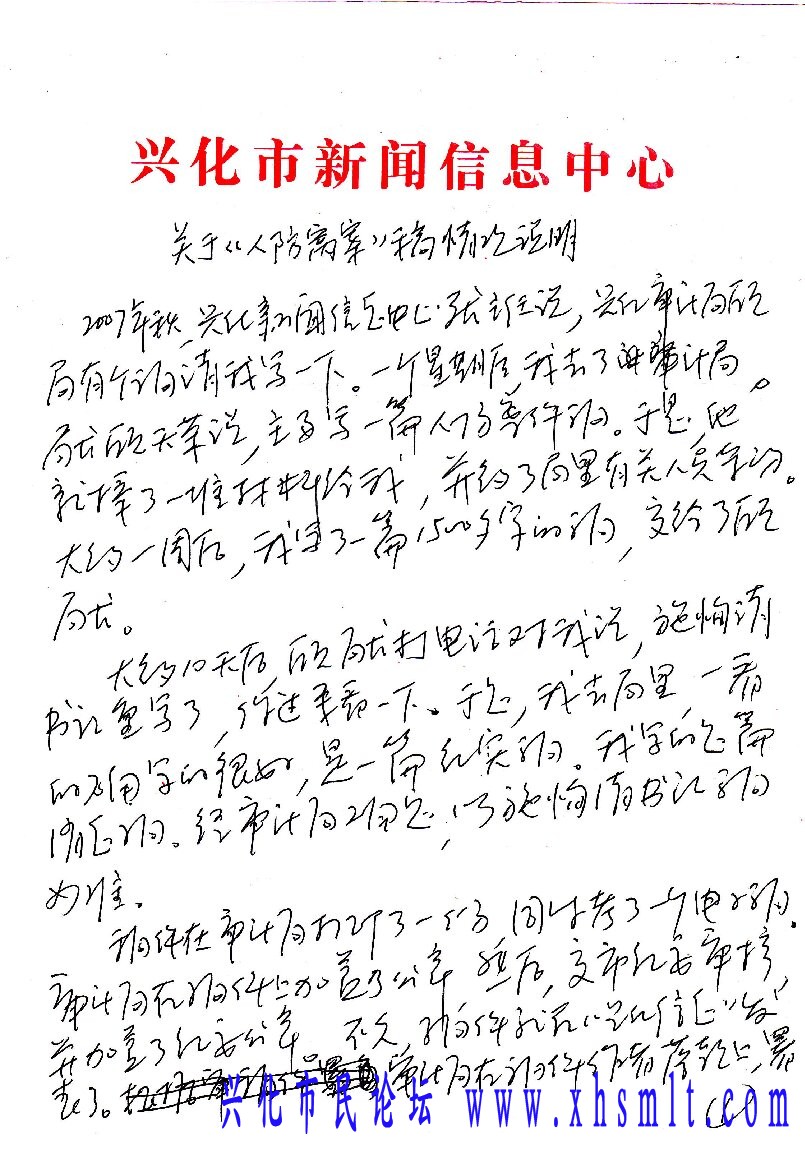 兴化市新闻信息中心
关于《人防窝案》稿情况说明
2007年秋,兴化新闻信息中心张主任说,兴化审计局顾
局有个稿请我写一下。一个星期后,我去了审计局。
局长顾天荣说,主要写一篇人防案件稿。于是,他
就捧了一堆材料给我,并约了局里有关人员采访。
大约一周后,我写了一篇1500多字的稿,交给了顾
局长。
大约10天后,顾局长打电话对我说,施悔清
书记重写了,你过来看一下。于是,我去局里,一看
的确写的很好,是一篇纪实稿。我写的是篇
消息稿。经审计局同意,以施悔清书记稿
为准。
稿件在审计局打印了一份,同时考了一个电子稿。
审计局在稿件上加盖了公章,然后,交市纪委审核,
并加盖了纪委公章。不久,稿件就在《兴化信息》发
表了。审计局在稿件作者落款上,署
(1)
兴化市民论坛 www.xhsmlt.com